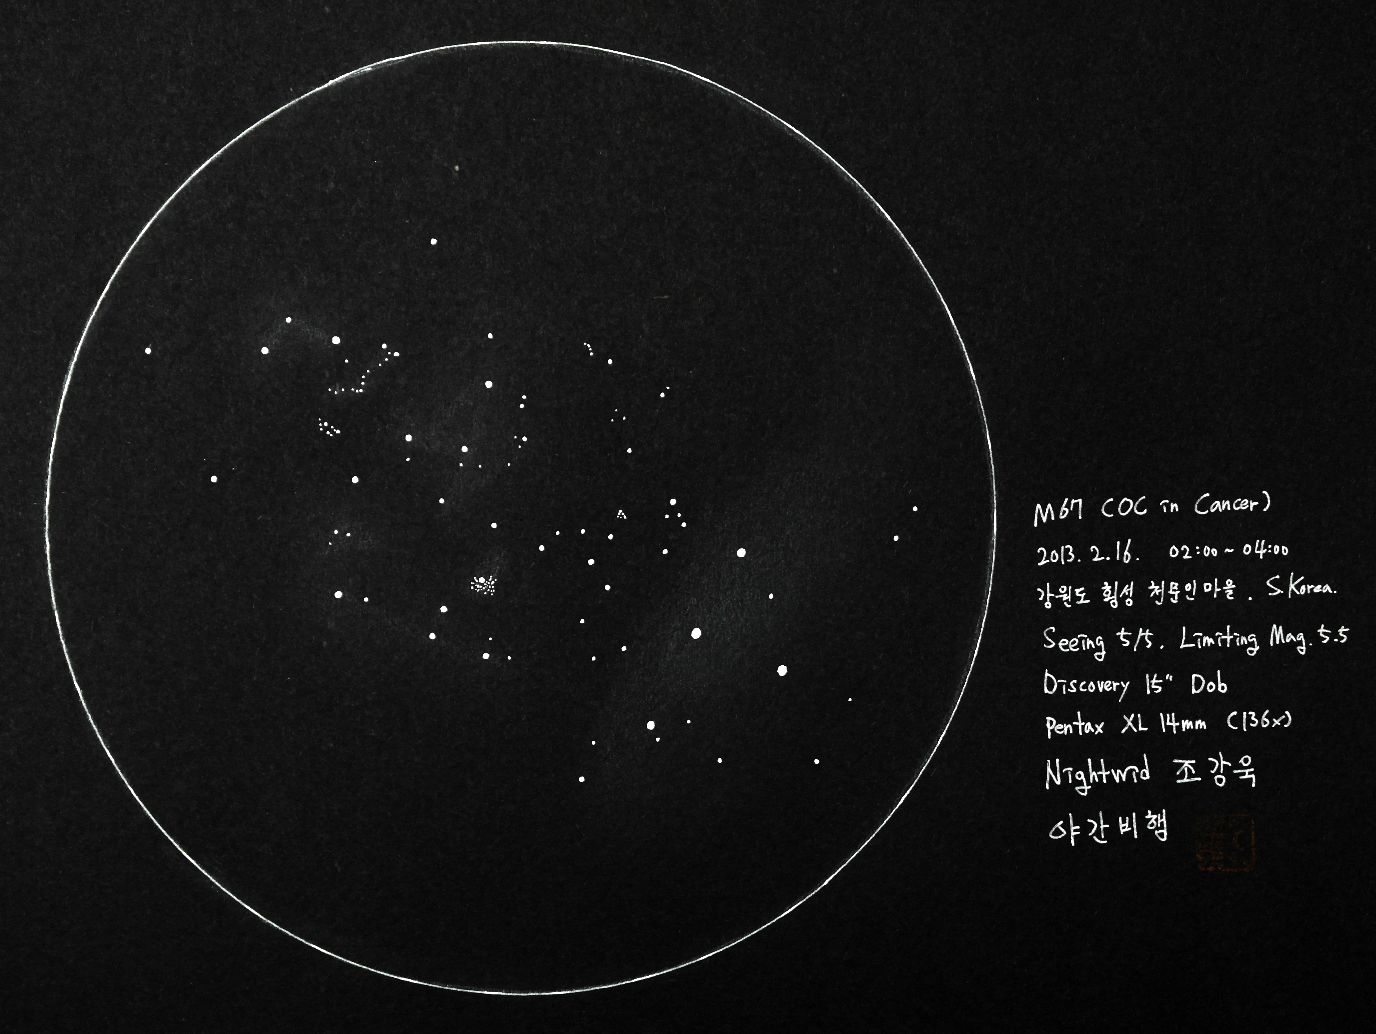 M67 (OC in Cancer)
2013. 2. 16. 02:00 ~ 04:00
강원도 횡성 천문인마을. S.Korea.
Seeing 5/5. Limiting Mag. 5.5
Discovery 15" Dob
Pentax XL 14mm (136x)
Nightwid 조강욱
야간비행